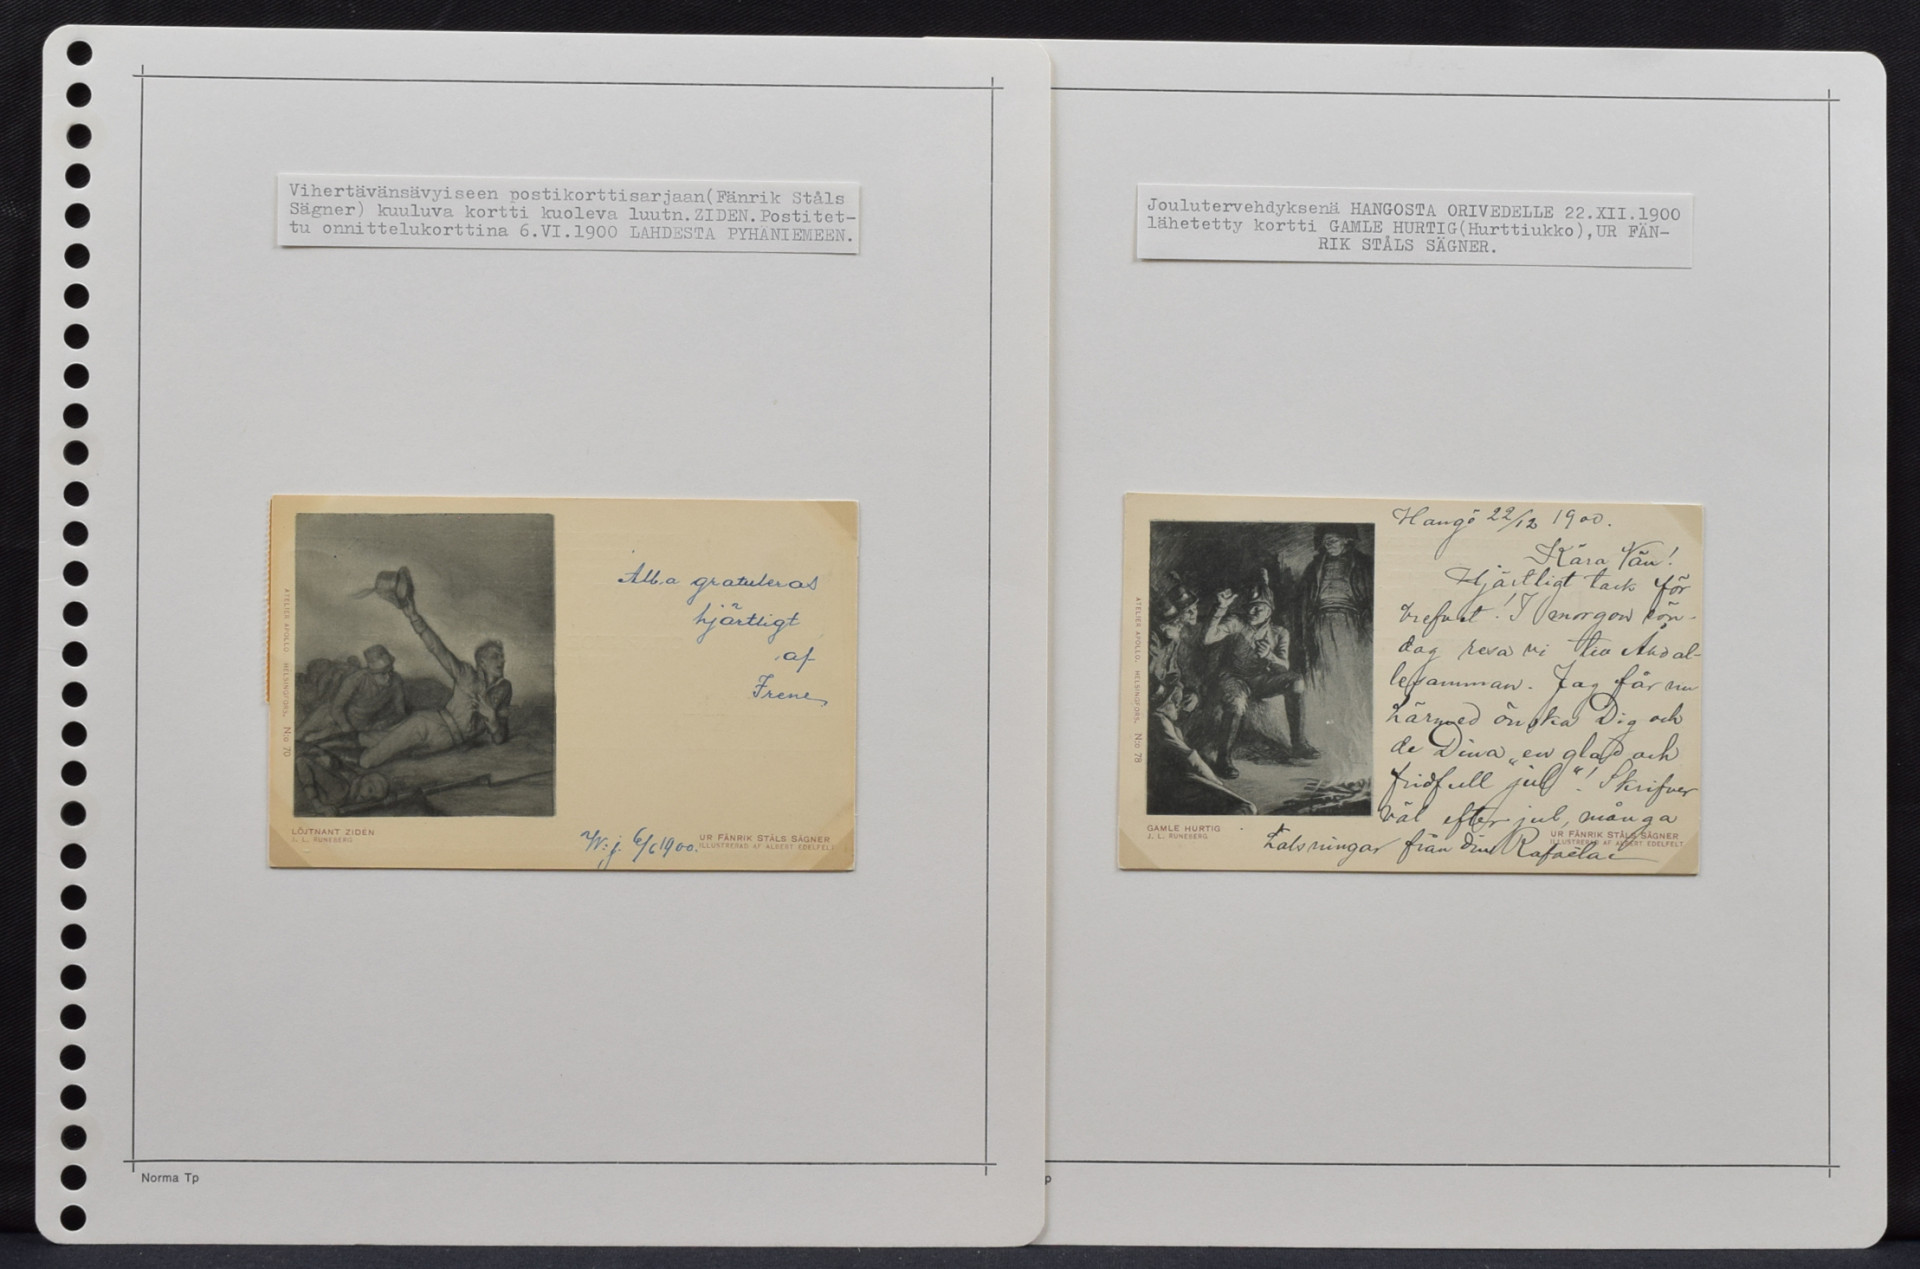 Vihertävänsävyiseen postikorttisarjaan(Fänrik Ståls
Sägner) kuuluva kortti kuoleva luutn.ZIDEN.Postitet-
tu onnittelukorttina 6.VI.1900 LAHDESTA PYHÄNIEMEEN.
Alb.a gratuleras
hjärtligt
af
Irene
W:j. 6/6 1900.
ATELIER APOLLO. HELSINGFORS. N:o 70
LÖJTNANT ZIDEN
J. L. RUNEBERG
UR FÄNRIK STÅLS SÄGNER
ILLUSTRERAD AF ALBERT EDELFELT
Norma Tp
Joulutervehdyksenä HANGOSTA ORIVEDELLE 22.XII.1900
lähetetty kortti GAMLE HURTIG(Hurttiukko),UR FÄN-
RIK STÅLS SÄGNER.
Hangö 22/12 1900.
Kära Vän!
Hjärtligt tack för
brefvet! I morgon sön-
dag resa vi
Jag får nu
härmed önska Dig och
de Dina "en glad och
fridfull jul"! Skrifver
väl efter jul, många
hälsningar från din Rafaela
ATELIER APOLLO. HELSINGFORS. N:o 78
GAMLE HURTIG
J. L. RUNEBERG
UR FÄNRIK STÅLS SÄGNER
ILLUSTRERAD AF ALBERT EDELFELT
p